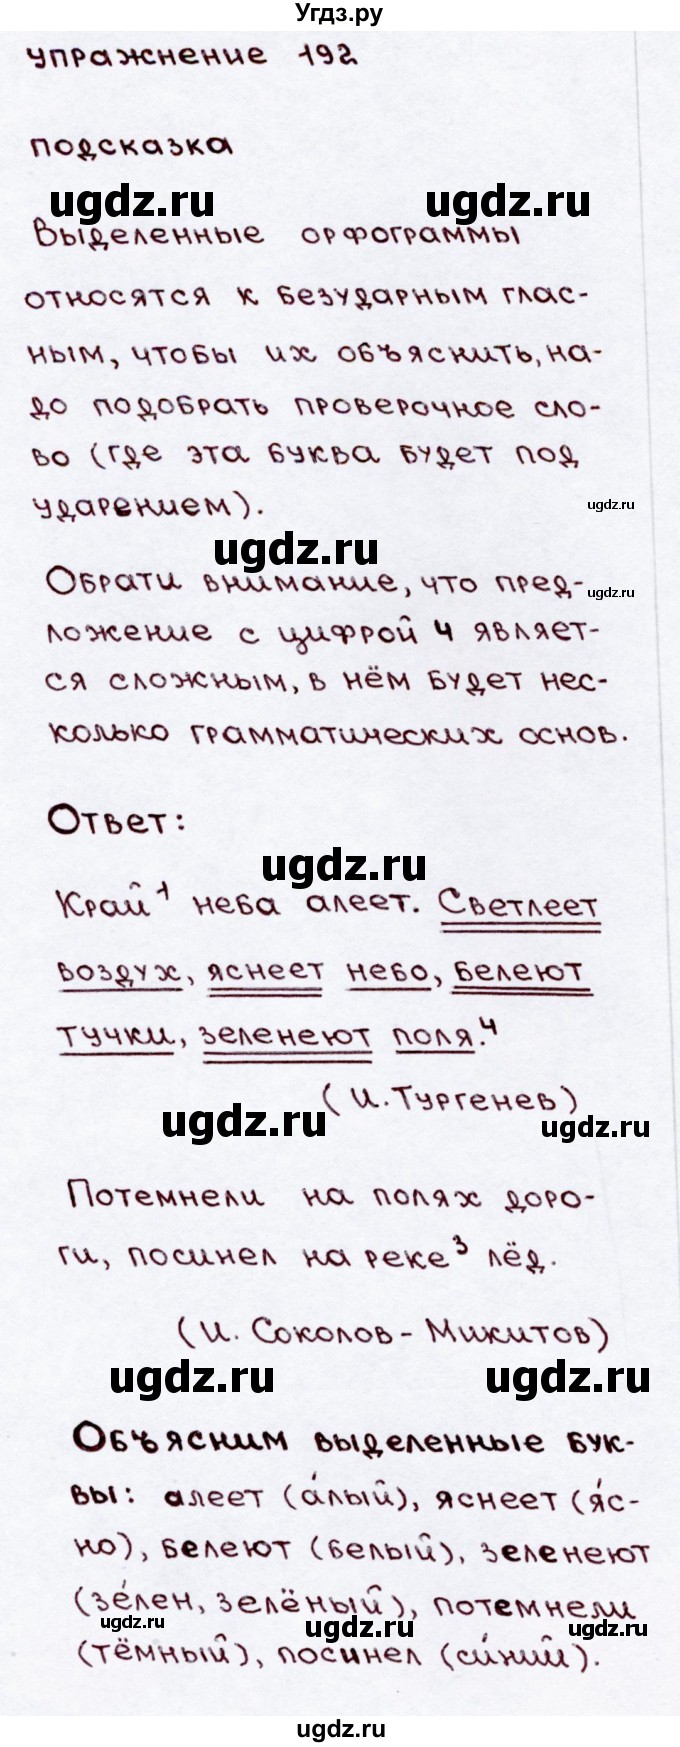 Угдз.ру
упражнение 192
подсказка
ugdz.ru ugdz.ru
Выделенные орфограммы
относятся к безударным глас-
ным, чтобы их объяснить, на-
до подобрать проверочное сло-
во (где эта буква будет под
ударением).
ugdz.ru
ugdz.ru
Обрати внимание, что пред-
ugdz.ru
ложение с цифрой 4 являет-
ся сложным, в нём будет нес-
колько грамматических основ.
Ответ:
ugdz.ru
Край¹ неба алеет. Светлеет
воздух, яснеет небо, белеют
тучки, зеленеют поля.⁴
(И. Тургенев)
ugdz.ru ugdz.ru
Потемнели на полях доро-
ги, посинел на реке³ лёд.
(И. Соколов-Микитов)
ugdz.ru ugdz.ru
Объясним выделенные бук-
вы: алеет (а́лый), яснеет (я́с-
но), белеют (белый), зеленеют
(зе́лен, зелёный), потемнели
ugdz.ru ugdz.ru ugdz.ru
(тёмный), посинел (си́ний).
ugdz.ru